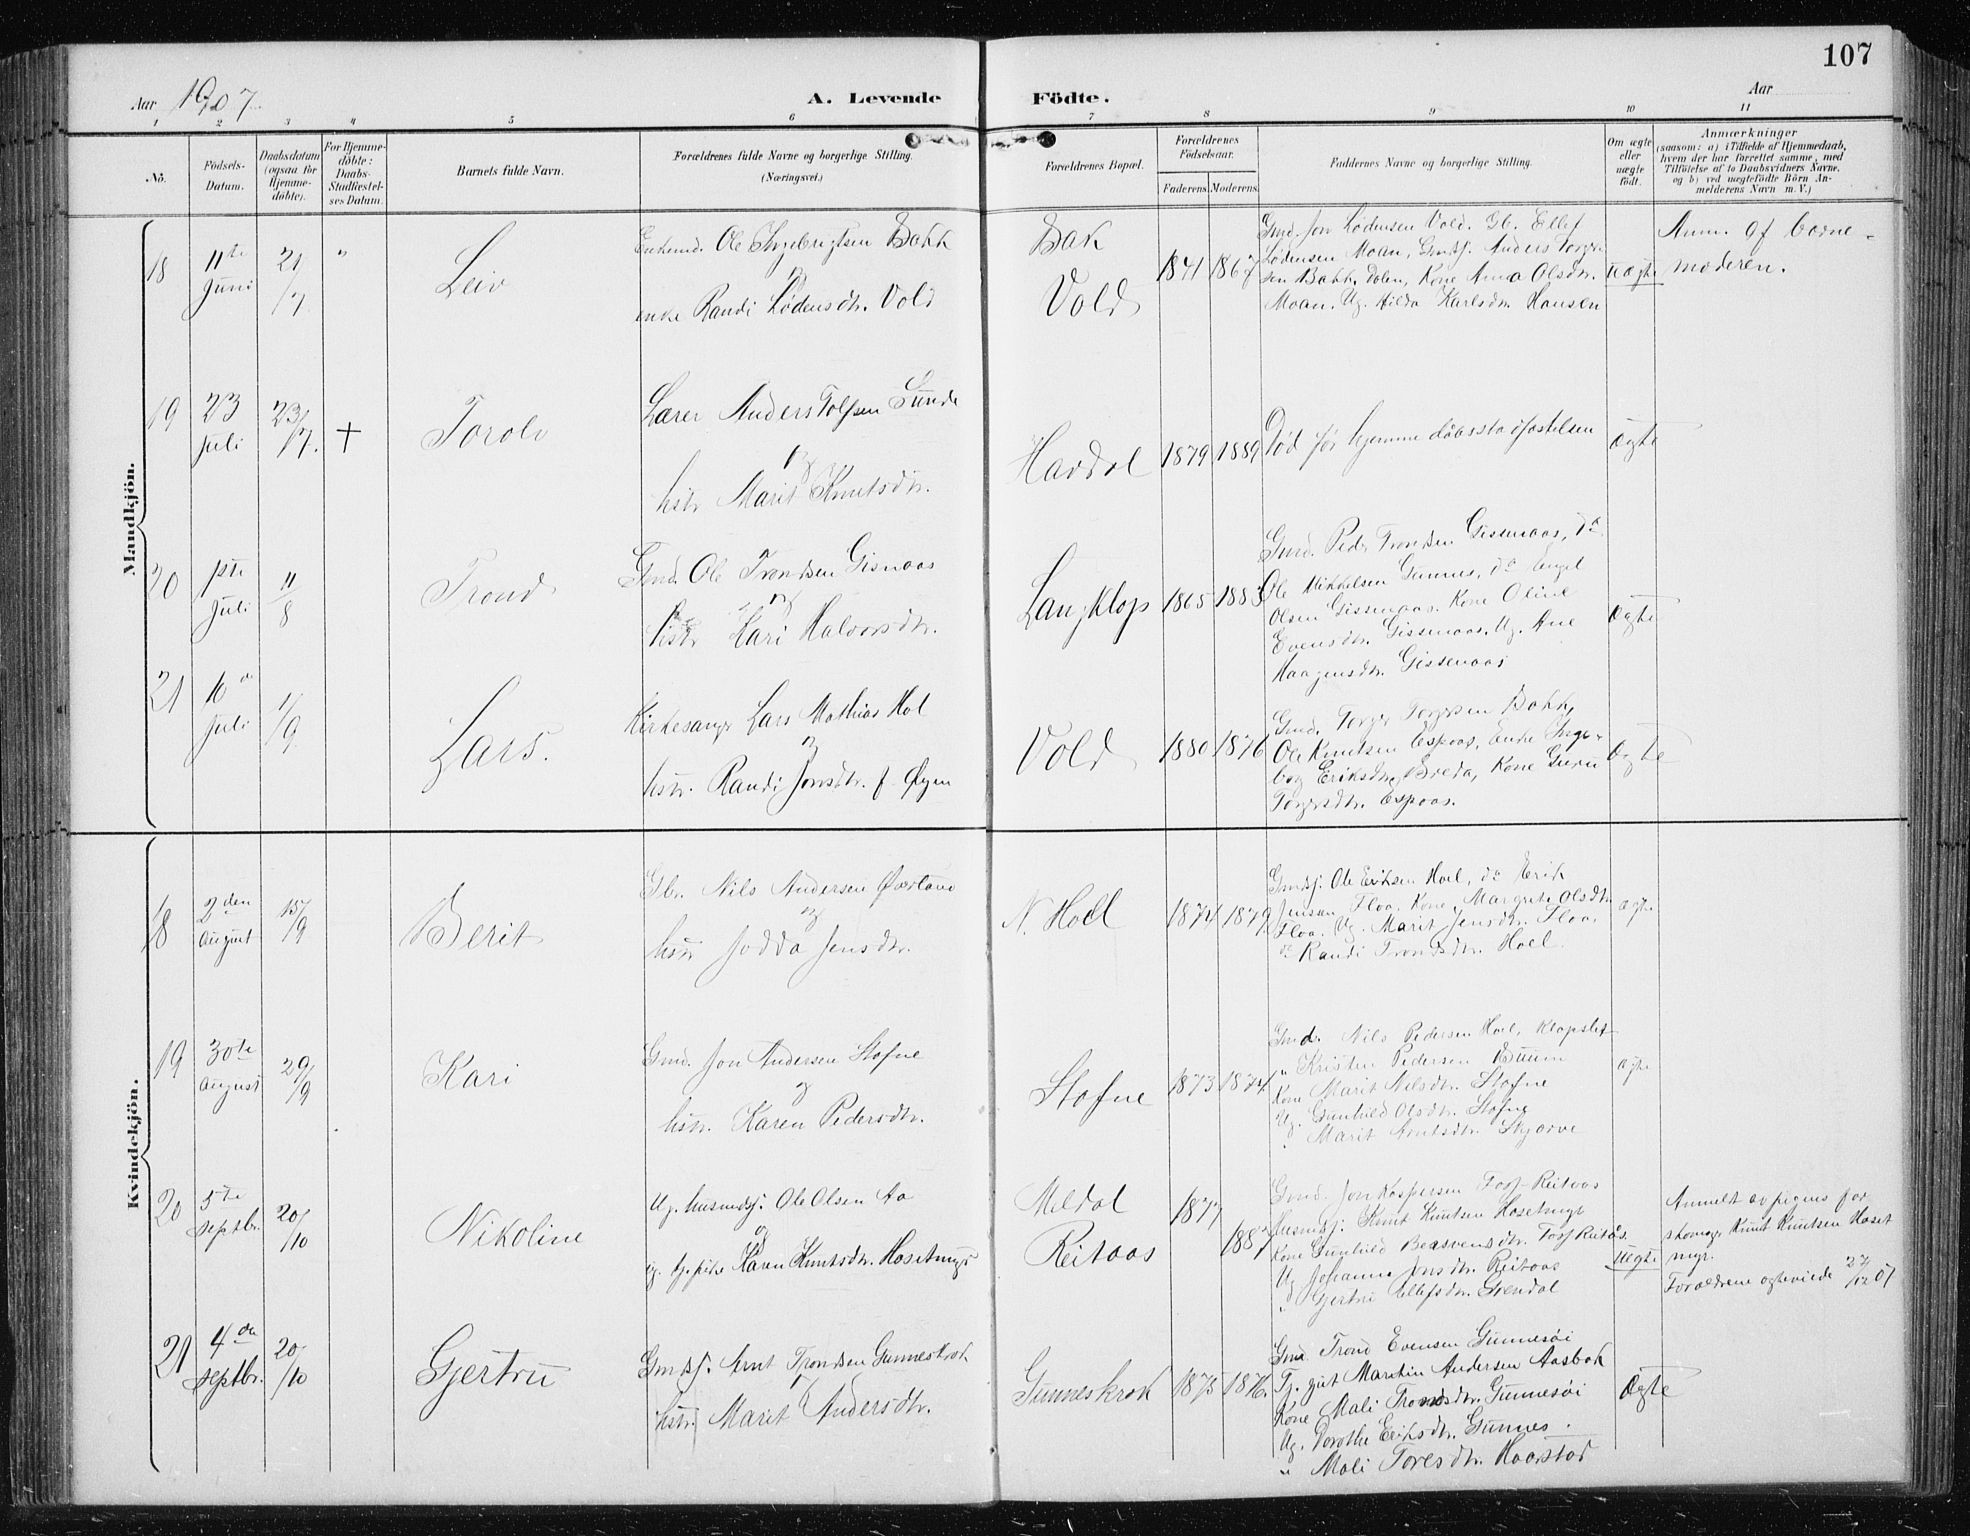 107
Aar 1907
A. Levende Födte.
Aar
1 2 3 4 5 6 7 8 9 10 11
No.
Födsels-Datum.
Daabsdatum (ogsaa for Hjemme-döbte).
For Hjemme-döbte: Daabs-Stadfæstel-ses Datum.
Barnets fulde Navn.
Forældrenes fulde Navne og borgerlige Stilling. (Næringsvei.)
Forældrenes Bopæl.
Forældrenes Födselsaar.
Faderens. Moderens.
Faddernes Navne og borgerlige Stilling.
Om ægte eller uægte födt.
Anmærkninger
(saasom: a) i Tilfælde af Hjemmedaab,
hvem der har forrettet samme, med
Tilföielse af to Daabsvidners Navne,
og b) ved uægtefödte Börn An-
melderens Navn m. V.)
Mandkjön.
18
11te Juni
21/7
"
Leiv
Enkemd. Ole Ingebrigtsen Bakk
og
enke Randi Lødensdtr. Vold
Bak
Vold
1841 1867
Gmd. Jon Lødensen Vold. Gb. Ellef
Lødensen Moan, Gmdsj. Anders Torger
sen Bakk, Dolen, Kone Anna Olsdtr.
Moan. Ug. Hilda Karlsdtr. Hansen
Uægte
Anm. af barne-
moderen.
19
23 Juli
23/7.
+
Torolv
Lærer Anders Tolfsen Sunde
og
hstr Marit Knutsdtr.
Havdal
1879 1889
Død før hjemmedåbsstadfæstelsen
Ægte
20
1ste Juli
11/8
Trond
Gmd. Ole Trondsen Gisnaas
og
hstr Kari Halvorsdtr.
Langklop
1865 1883
Gmd. Peder Trondsen Gissenaas, do
Ole Mikkelsen Gunnes, do Engel
Olsen Gissenaas. Kone Oline
Evensdtr. Gissenaas. Ug. Ane
Haagensdtr. Gissenaas
Ægte
21
16de Juli
1/9
Lars.
Kirkesanger Lars Mathias Hol
og
hstr. Randi Jonsdtr. f. Øyen
Vold
1880 1876
Gmd. Torger Torgersen Bakk,
Ole Knutsen Espaas, Enke Inge-
borg Eriksdtr. Breda, Kone Guru
Torgersdtr. Espaas.
Ægte
Kvindekjön.
18
2den August
15/9
Berit
Gbr. Nils Andersen Øverland
og
hstr Jodda Jensdtr.
N. Hoel
1874 1879
Gmdsj. Ole Eriksen Hoel, do Erik
Jensen Floa. Kone Margrete Olsdtr
Floa. Ug. Marit Jensdtr. Floa.
do Randi Trondsdtr. Hoel.
Ægte
19
30te August
29/9
Kari
Gmd. Jon Andersen Stofne
og
hstr. Karen Pedersdtr.
Stofne
1873 1874
Gmd. Nils Pedersen Hoel, Klopslet
" Kristen Pedersen Buum
Kone Marit Nilsdtr. Stofne
Ug. Gunhild Olsdtr. Stofne
" Marit Arntsdtr. Skjørve
Ægte
20
5te Septbr.
20/10
Nikoline
Ug. husmdsj. Ole Olsen Aa
og
ug. tj. pike Karen Knutsdtr. Hosetmyr
Meldal
Reitaas
1877
1887
Gmd. Jon Kaspersen Reitaas
Husmdsj. Knut Knutsen Hosetmyr
Kone Gunhild Reitås.
Ug. Johanna Jonsdtr. Reitaas
" Gjertru Ellefsdtr. Grendal
Uægte
Anmelt av pigens far
skomager Knut Knutsen Hoset
myr.
Forældrene ægteviede 27/12 07
21
4de Septbr.
20/10
Gjertru
Gmdsj. Arnt Trondsen Gunneskrok
og
hstr. Marit Andersdtr.
Gunneskrok
1875 1876.
Gmd. Trond Evensen Gunnesøi
Tj. gut Martin Andersen Aasbak
Kone Mali Trondsdtr. Gunnesøi
Ug. Dorothe Eriksdtr. Gunnes.
" Mali Toresdtr. Haarstad
Ægte